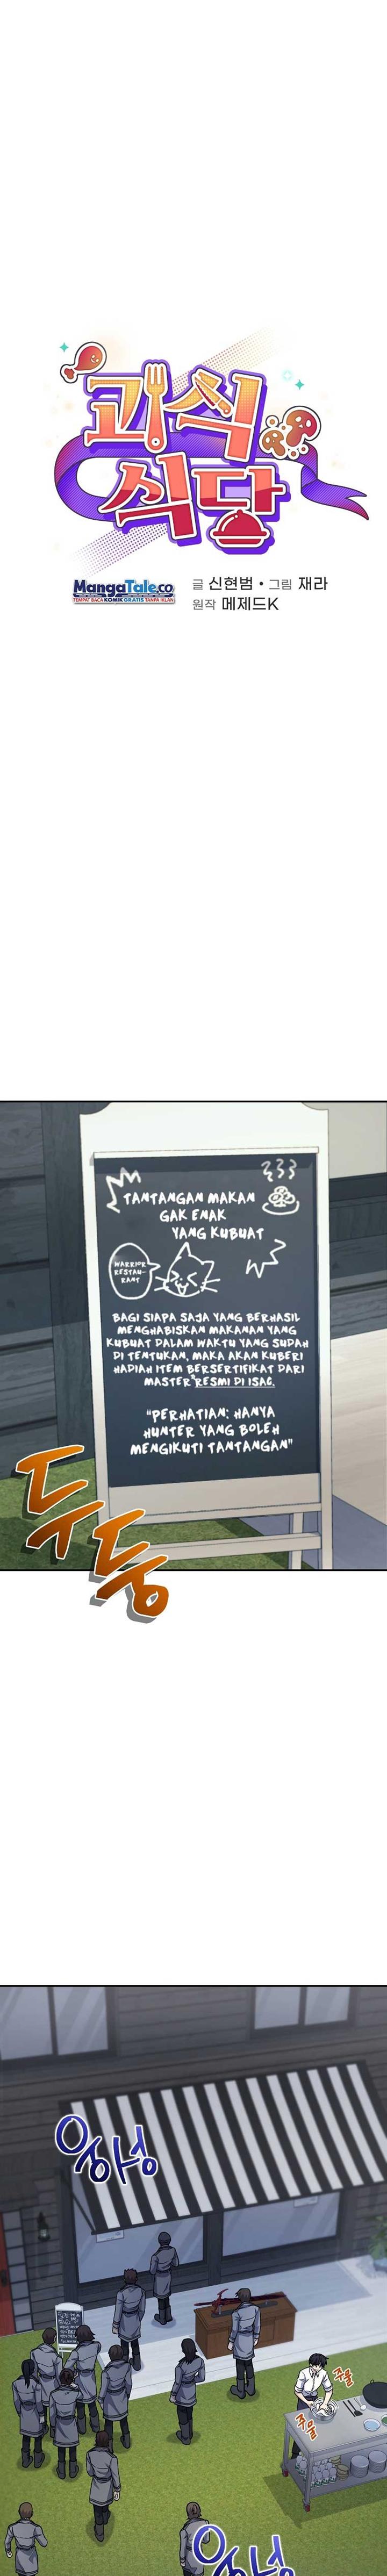 괴식
식당
MangaTale.co
TEMPAT BACA KOMIK GRATIS TANPA IKLAN
글 신현범 • 그림 재라
원작 메제드K
TANTANGAN MAKAN
GAK ENAK
YANG KUBUAT
WARRIOR
RESTAU-
RANT
BAGI SIAPA SAJA YANG BERHASIL
MENGHABISKAN MAKANAN YANG
KUBUAT DALAM WAKTU YANG SUDAH
DI TENTUKAN. MAKA AKAN KUBERI
HADIAH ITEM BERSERTIFIKAT DARI
MASTER RESMI DI ISAC.
"PERHATIAN: HANYA
HUNTER YANG BOLEH
MENGIKUTI TANTANGAN"
두둥
웅성
주물
주물
웅성